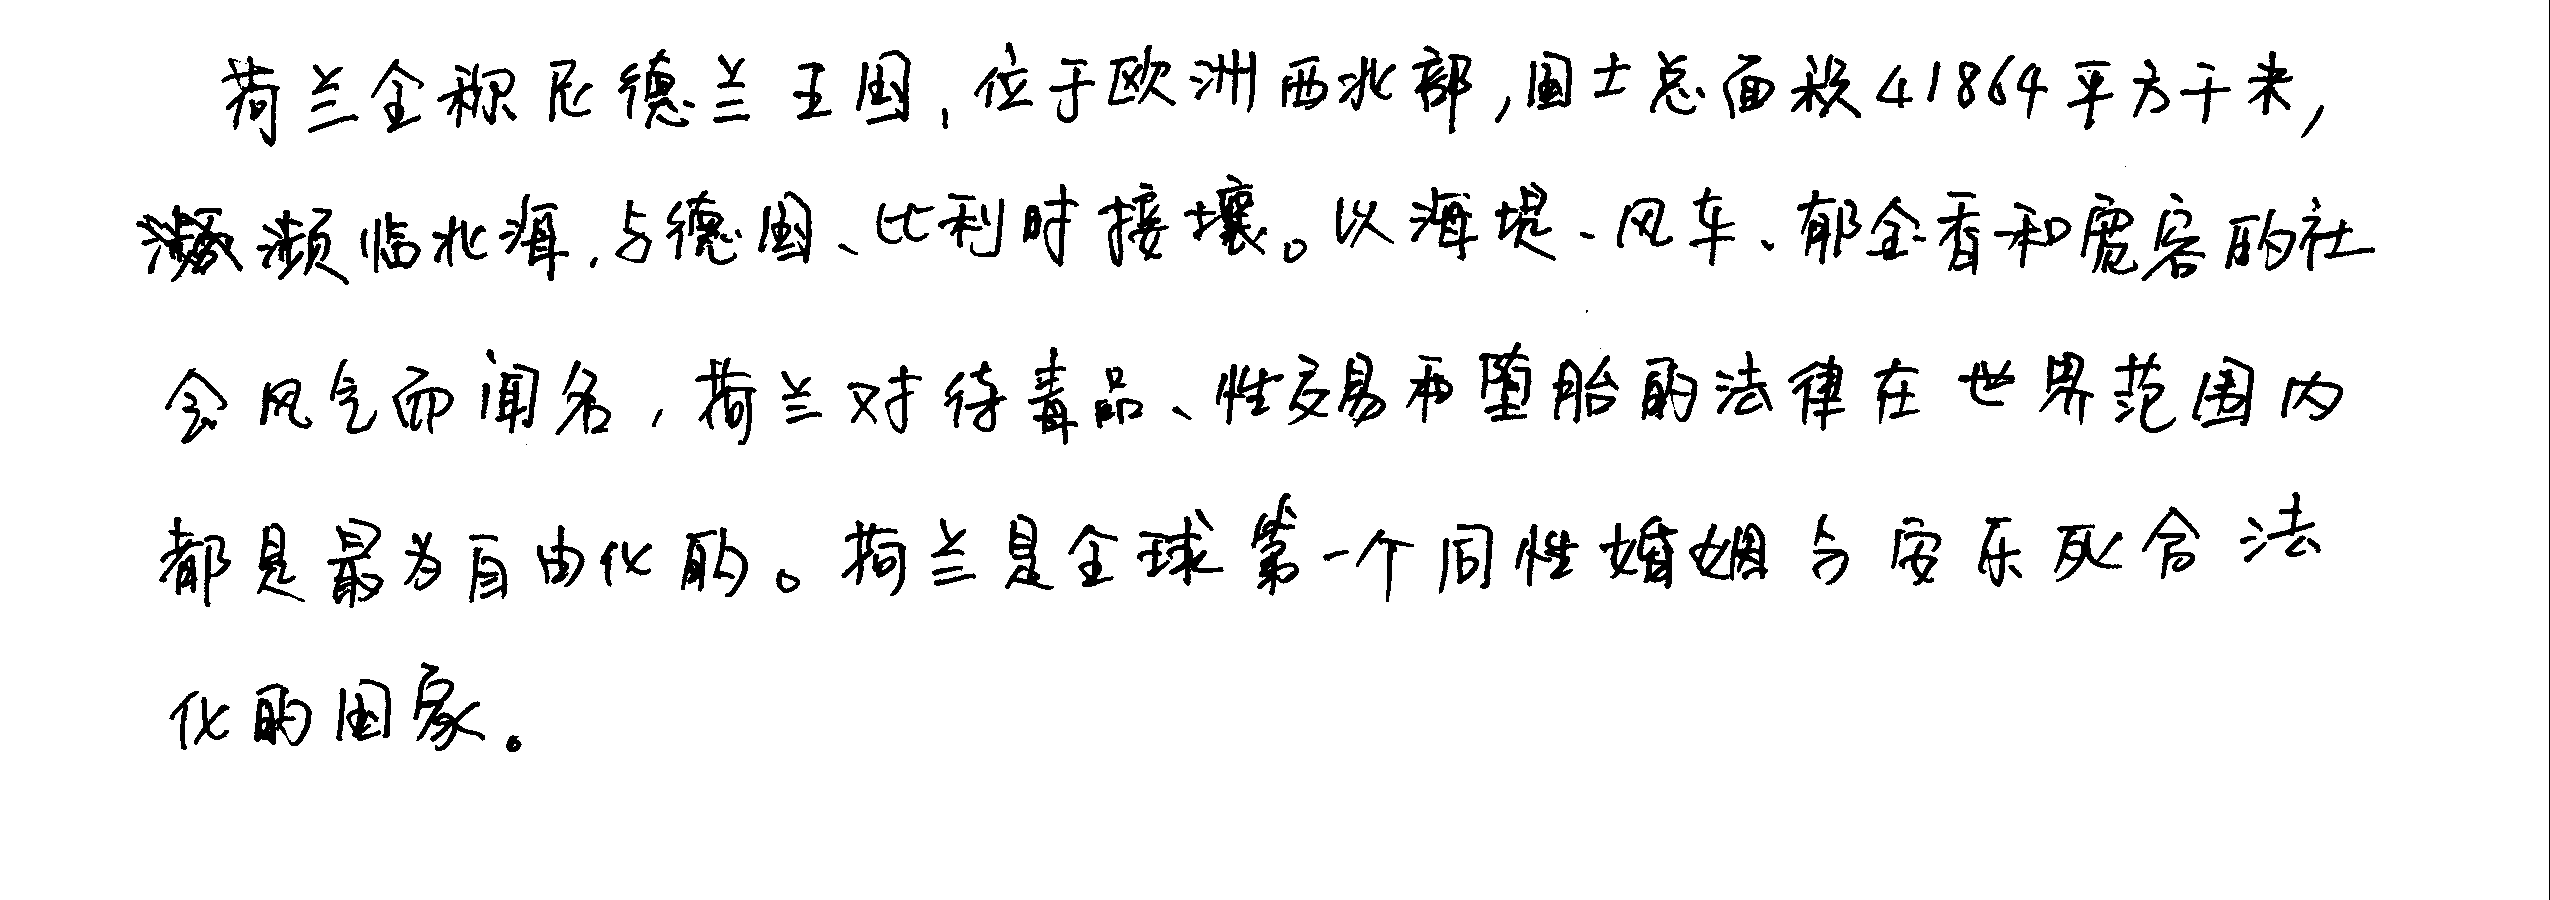 荷兰全称尼德兰王国,位于欧洲西北部,国土总面积41864平方千米,
濒临北海,与德国、比利时接壤。以海堤、风车、郁金香和宽容的社
会风气而闻名,荷兰对待毒品、性交易和堕胎的法律在世界范围内
都是最为自由化的。荷兰是全球第一个同性婚姻与安乐死合法
化的国家。